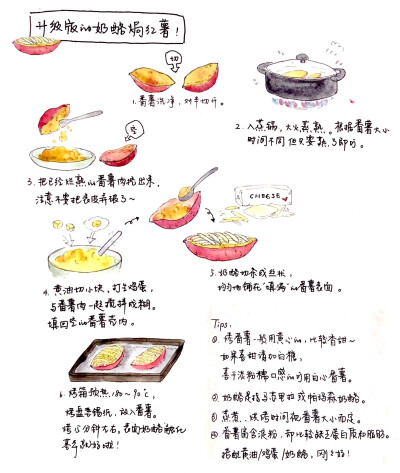 升级版的奶酪焗红薯!
切
1. 番薯洗净,对半切开。
2. 入蒸锅,大火蒸熟。根据番薯大小
时间不同但只要熟了即可。
挖
3. 把已经烂熟的番薯肉挖出来,
注意不要把表皮弄破了~
4. 黄油切小块,打上鸡蛋,
与番薯肉一起搅拌成糊。
填回空的番薯壳内。
CHEESE
5. 奶酪切条或丝状,
均匀地铺在"填满"的番薯表面。
6. 烤箱预热180~90℃,
烤盘垫锡纸,放入番薯。
烤15分钟左右,表面奶酪融化
基本就好啦!
Tips:
烤番薯一般用黄心的,比较香甜~
如果喜甜请加白糖,
喜干淀粉糯口感的可用白心番薯。
奶酪是指马苏里拉或帕玛森奶酪。
蒸煮、烘烤时间视番薯大小而定。
番薯富含淀粉,却比较缺乏蛋白质和脂肪。
搭配黄油/鸡蛋/奶酪,刚刚好!